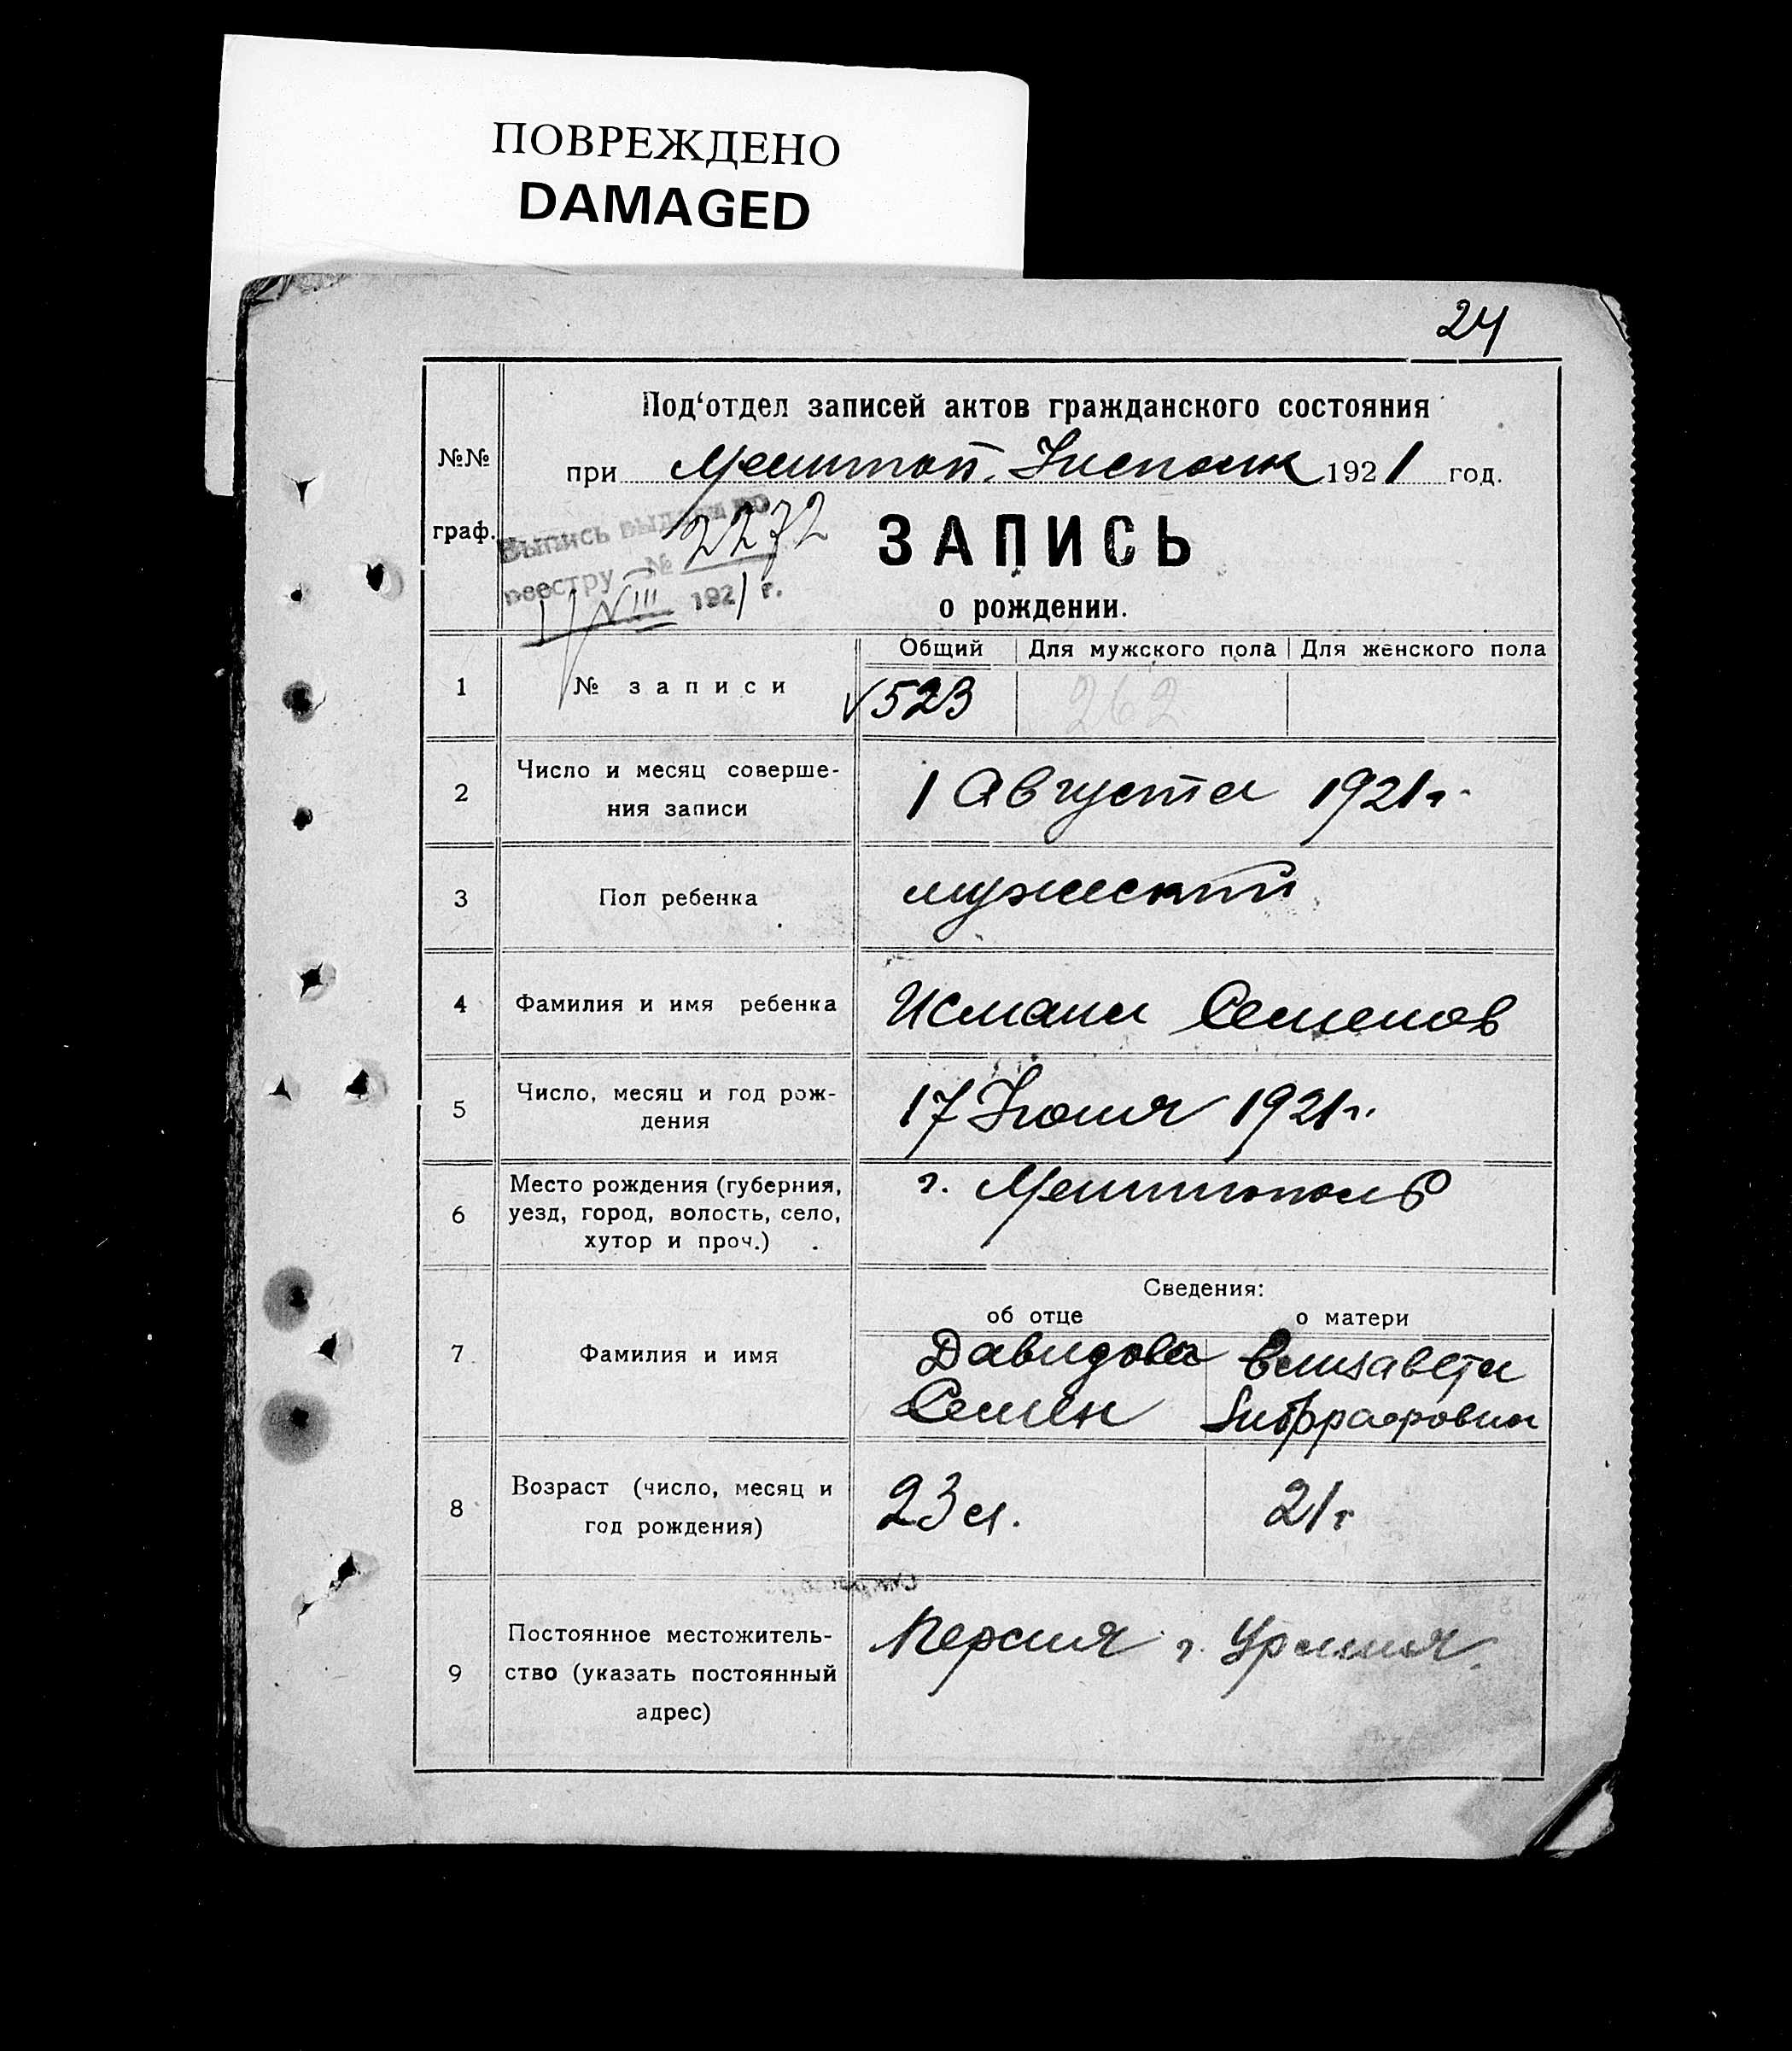 ПОВРЕЖДЕНО
DAMAGED
24
Под‘отдел записей актов гражданского состояния
№№
при Мелитоп. Исполк 1921 год.
граф.
Выпись выдана по
реестру № 2272
1/VIII 1921 г.
ЗАПИСЬ
о рождении.
Общий Для мужского пола Для женского пола
1 № записи √523 262
2 Число и месяц соверше-
ния записи
1 Августа 1921 г.
3 Пол ребенка мужеский
4 Фамилия и имя ребенка Семенов
5 Число, месяц и год рож-
дения
17 Июля 1921 г.
6 Место рождения (губерния,
уезд, город, волость, село,
хутор и проч.)
г. Мелитополь
Сведения:
об отце о матери
7 Фамилия и имя
Давидова Елизавета
Семен
8 Возраст (число, месяц и
год рождения)
23 л. 21 г
9 Постоянное местожитель-
ство (указать постоянный
адрес)
Персия г. Урмия.